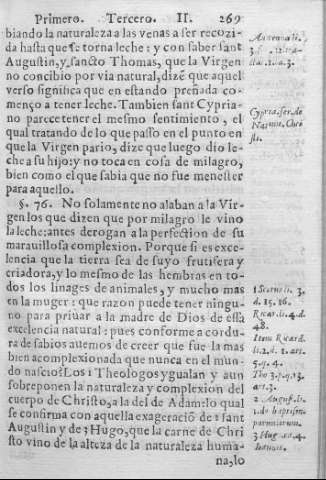 Primero. Tercero. II. 269
biando la naturaleza a las venas a ser rozi
da hasta que se torna leche: y con saber sant
Augustin, y sancto Thomas, que la Virgen
no concibio por via natural, dizē que aquel
verso significa que en estando preñada co-
menço a tener leche. Tambien sant Cypria-
no parece tener el mesmo sentimiento, el
qual tratando de lo que passo en el punto en
que la Virgen pario, dize que luego dio le-
che a su hijo: y no toca en cosa de milagro,
bien como el que sabia que no fue menester
para aquello.
§. 76. No solamente no alaban a la Vir-
gen los que dizen que por milagro le vino
la leche: antes derogan a la perfection de su
marauillosa complexion. Porque si es exce-
lencia que la tierra sea de suyo frutifera y
criadora, y lo mesmo de las hembras en to-
dos los linages de animales, y mucho mas
en la muger: que razon puede tener ningu-
no para priuar a la madre de Dios de essa
excelencia natural: pues conforme a cordu-
ra de sabios auemos de creer que fue la mas
bien acomplexionada que nunca en el mun-
do nascio? Los 1 Theologos ygualan y aun
sobreponen la naturaleza y complexion del
cuerpo de Christo, a la del de Adam: lo qual
se confirma con aquella exageraciō de 2 sant
Augustin y de 3 Hugo, que la carne de Chri
sto vino de la alteza de la naturaleza huma-
na, lo
Cypria. ser. de
Natiuit. Chri
sti.
1 Scotus li. 3.
d. 15. 16.
Ricar. li. 4. d.
48.
Item Ricard.
li. 2. d. 2. art.
5. q. 4.
Tho. 3. p. q. 13.
art. 3.
2 August. li.
1. de baptism.
paruulorum.
3 Hug.